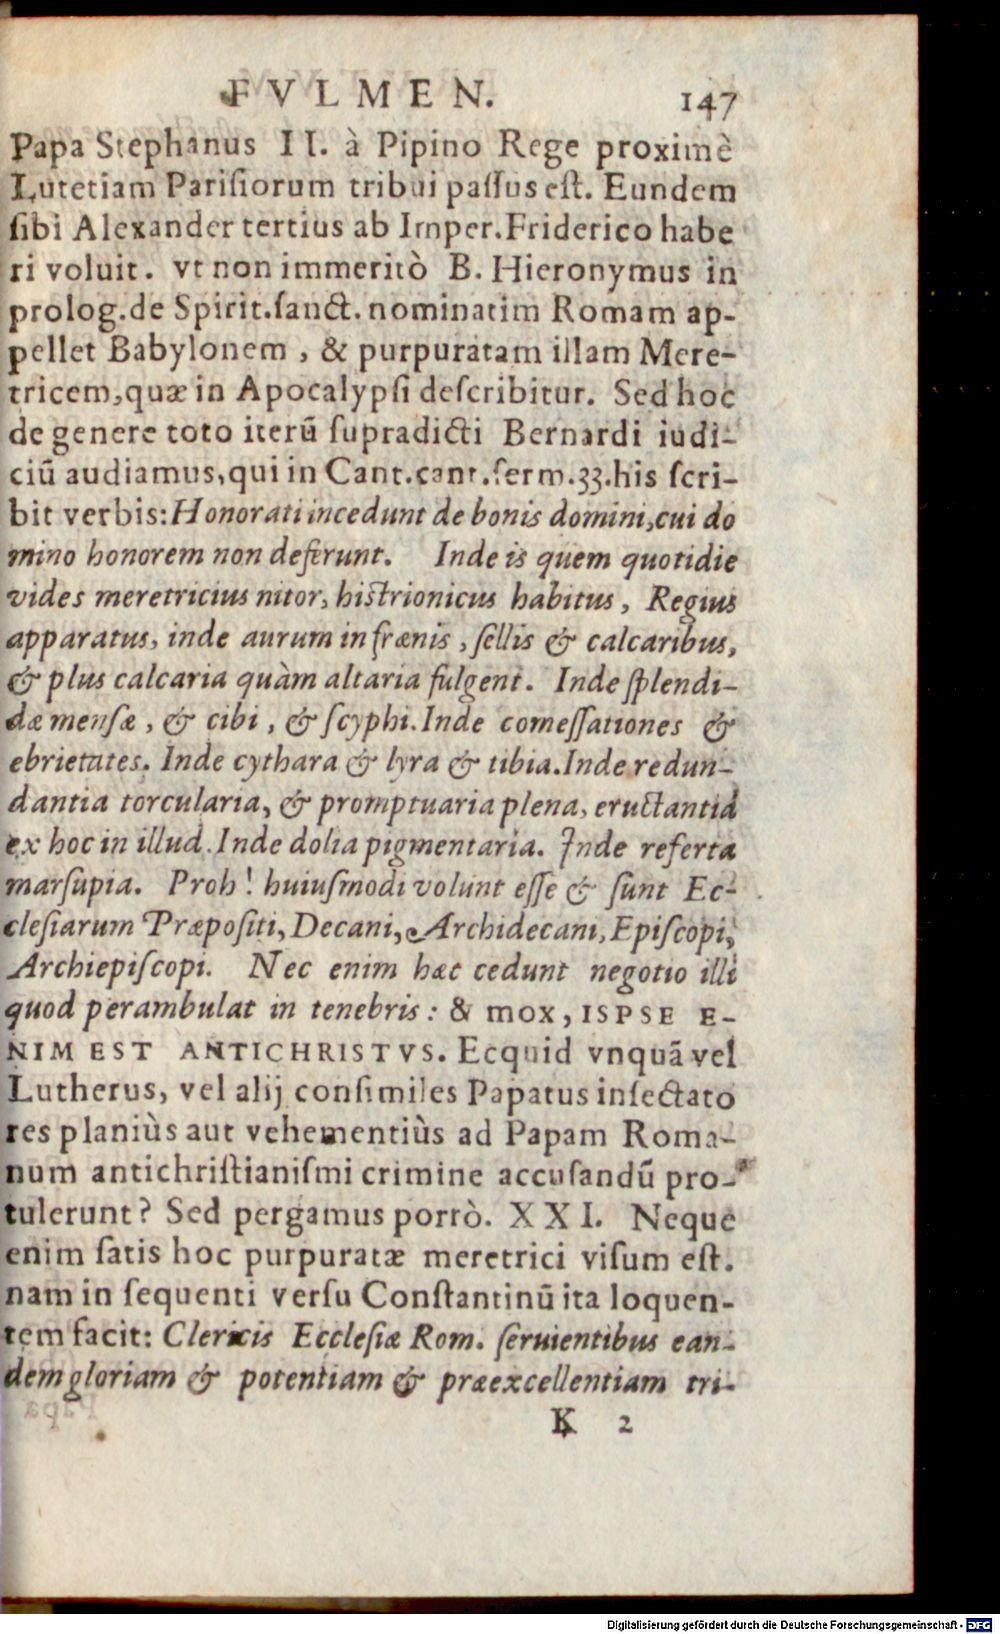 FVLMEN. 147
Papa Stephanus II. à Pipino Rege proximè
Lutetiam Parisiorum tribui passus est. Eundem
sibi Alexander tertius ab Imper. Friderico habe
ri voluit. vt non immeritò B. Hieronymus in
prolog. de Spirit. sanct. nominatim Romam ap-
pellet Babylonem, & purpuratam illam Mere-
tricem, quæ in Apocalypsi describitur. Sed hoc
de genere toto iterũ supradicti Bernardi iudi-
ciũ audiamus, qui in Cant. cant. serm. 33. his scri-
bit verbis: Honorati incedunt de bonis domini, cui do
mino honorem non deferunt. Inde is quem quotidie
vides meretricius nitor, histrionicus habitus, Regius
apparatus, inde aurum in frænis, sellis & calcaribus,
& plus calcaria quàm altaria fulgent. Inde splendi-
dæ mensæ, & cibi, & scyphi. Inde comessationes &
ebrietates. Inde cythara & lyra & tibia. Inde redun-
dantia torcularia, & promptuaria plena, eructantia
ex hoc in illud. Inde dolia pigmentaria. Inde referta
marsupia. Proh! huiusmodi volunt esse & sunt Ec-
clesiarum Præpositi, Decani, Archidecani, Episcopi,
Archiepiscopi. Nec enim hæc cedunt negotio illi
quod perambulat in tenebris: & mox, ISPSE E-
NIM EST ANTICHRISTVS. Ecquid vnquã vel
Lutherus, vel alij consimiles Papatus insectato
res planiùs aut vehementiùs ad Papam Roma-
num antichristianismi crimine accusandũ pro-
tulerunt? Sed pergamus porrò. XXI. Neque
enim satis hoc purpuratæ meretrici visum est.
nam in sequenti versu Constantinũ ita loquen-
tem facit: Clericis Ecclesiæ Rom. seruientibus ean-
dem gloriam & potentiam & præexcellentiam tri-
K 2
Digitalisierung gefördert durch die Deutsche Forschungsgemeinschaft - DFG